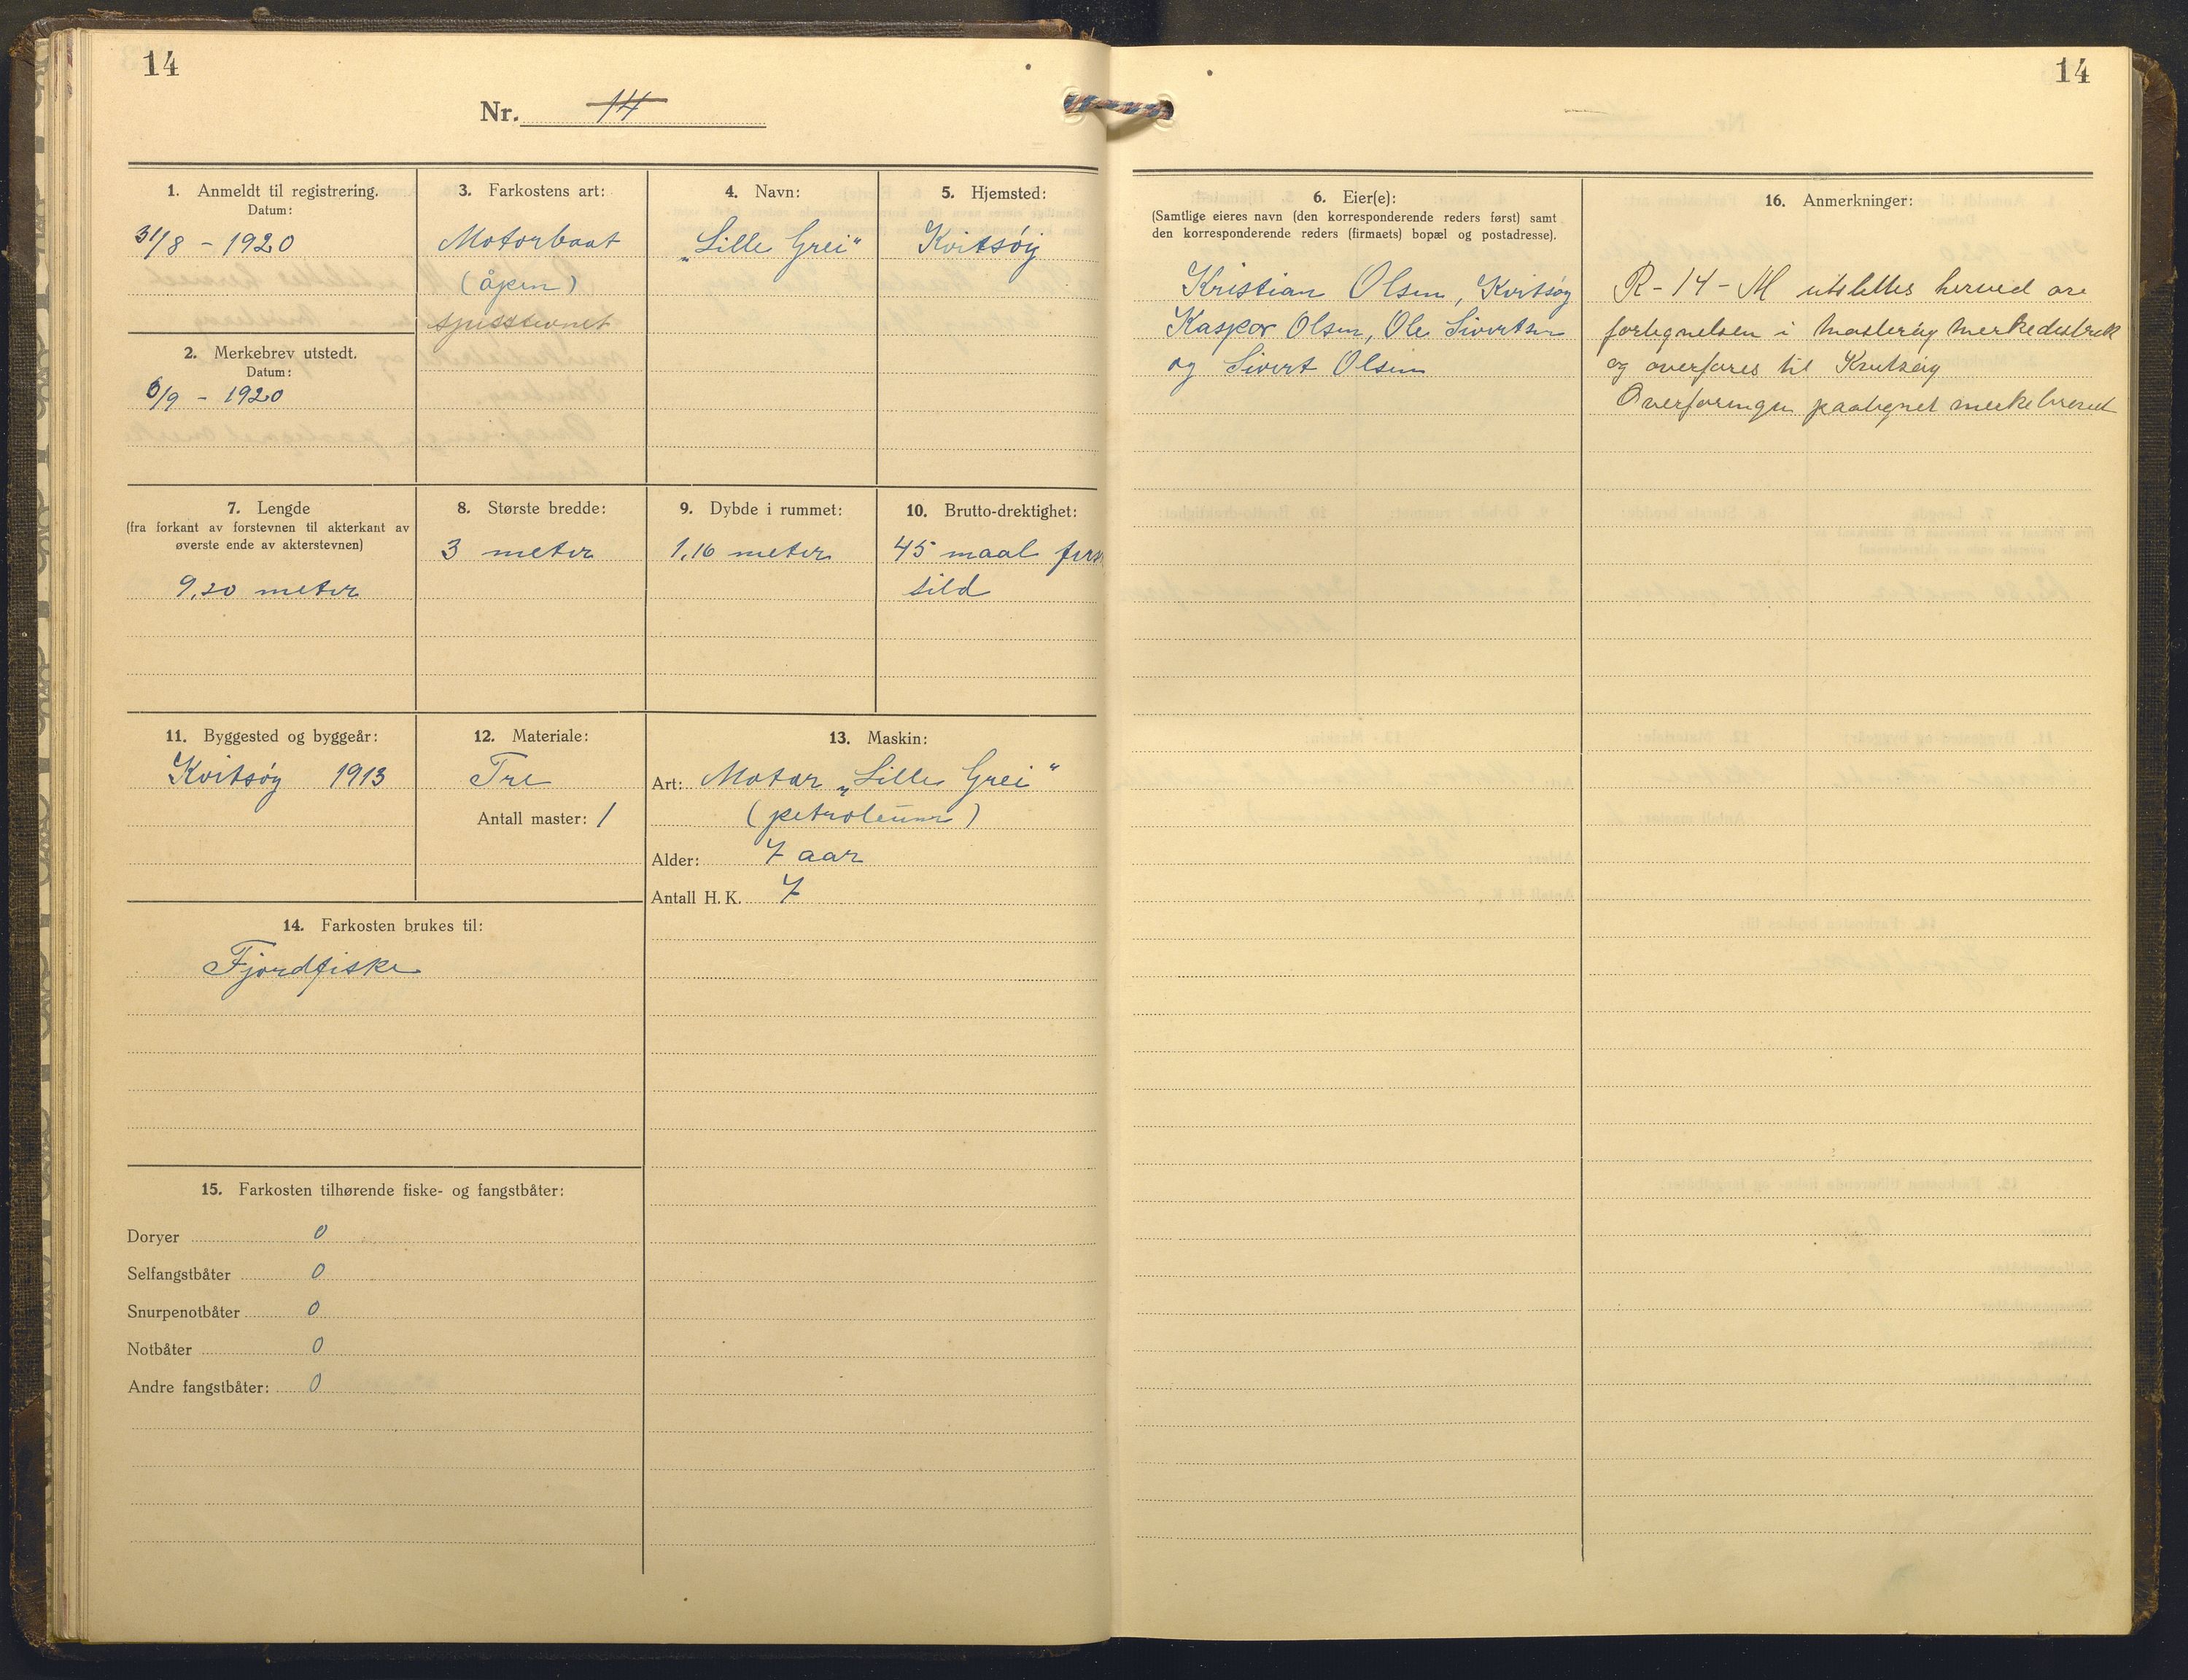 14
Nr. 14
1. Anmeldt til registrering.
Datum:
31/8 - 1920
2. Merkebrev utstedt.
Datum:
6/9 - 1920
3. Farkostens art:
Motorbaat
(åpen)
spisstevnet
4. Navn:
„Lille Grei“
5. Hjemsted:
Kvitsøy
7. Lengde
(fra forkant av forstevnen til akterkant av
øverste ende av akterstevnen)
9,20 meter
8. Største bredde:
3 meter
9. Dybde i rummet:
1,16 meter
10. Brutto-drektighet:
45 maal fersk
sild
11. Byggested og byggeår:
Kvitsøy 1913
12. Materiale:
Tre
Antall master: 1
13. Maskin:
Art: Motor „Lille Grei“
(petroleum)
Alder: 7 aar
Antall H. K. 7
14. Farkosten brukes til:
Fjordfiske
15. Farkosten tilhørende fiske- og fangstbåter:
Doryer 0
Selfangstbåter 0
Snurpenotbåter 0
Notbåter 0
Andre fangstbåter: 0
14
6. Eier(e):
(Samtlige eieres navn (den korresponderende reders først) samt
den korresponderende reders (firmaets) bopæl og postadresse).
Kristian Olsen, Kvitsøy
Kasper Olsen, Ole Sivertsen
og Sivert Olsen
16. Anmerkninger:
R-14-M utslettes herved av
fortegnelsen i Mosterøy merkedistrikt
og overføres til Kvitsøy
Overføringen paategnet merkebrevet